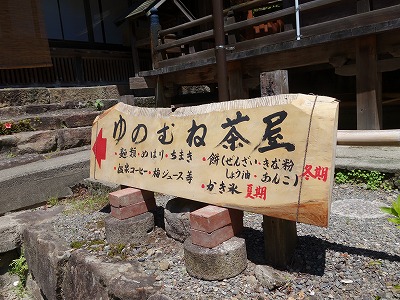 ゆのむね茶屋
・麺類・めはり・ちまき
・餅(ぜんざい・きな粉
しょう油・あんこ)
冬期
・コーヒー・梅ジュース等
・かき氷 夏期